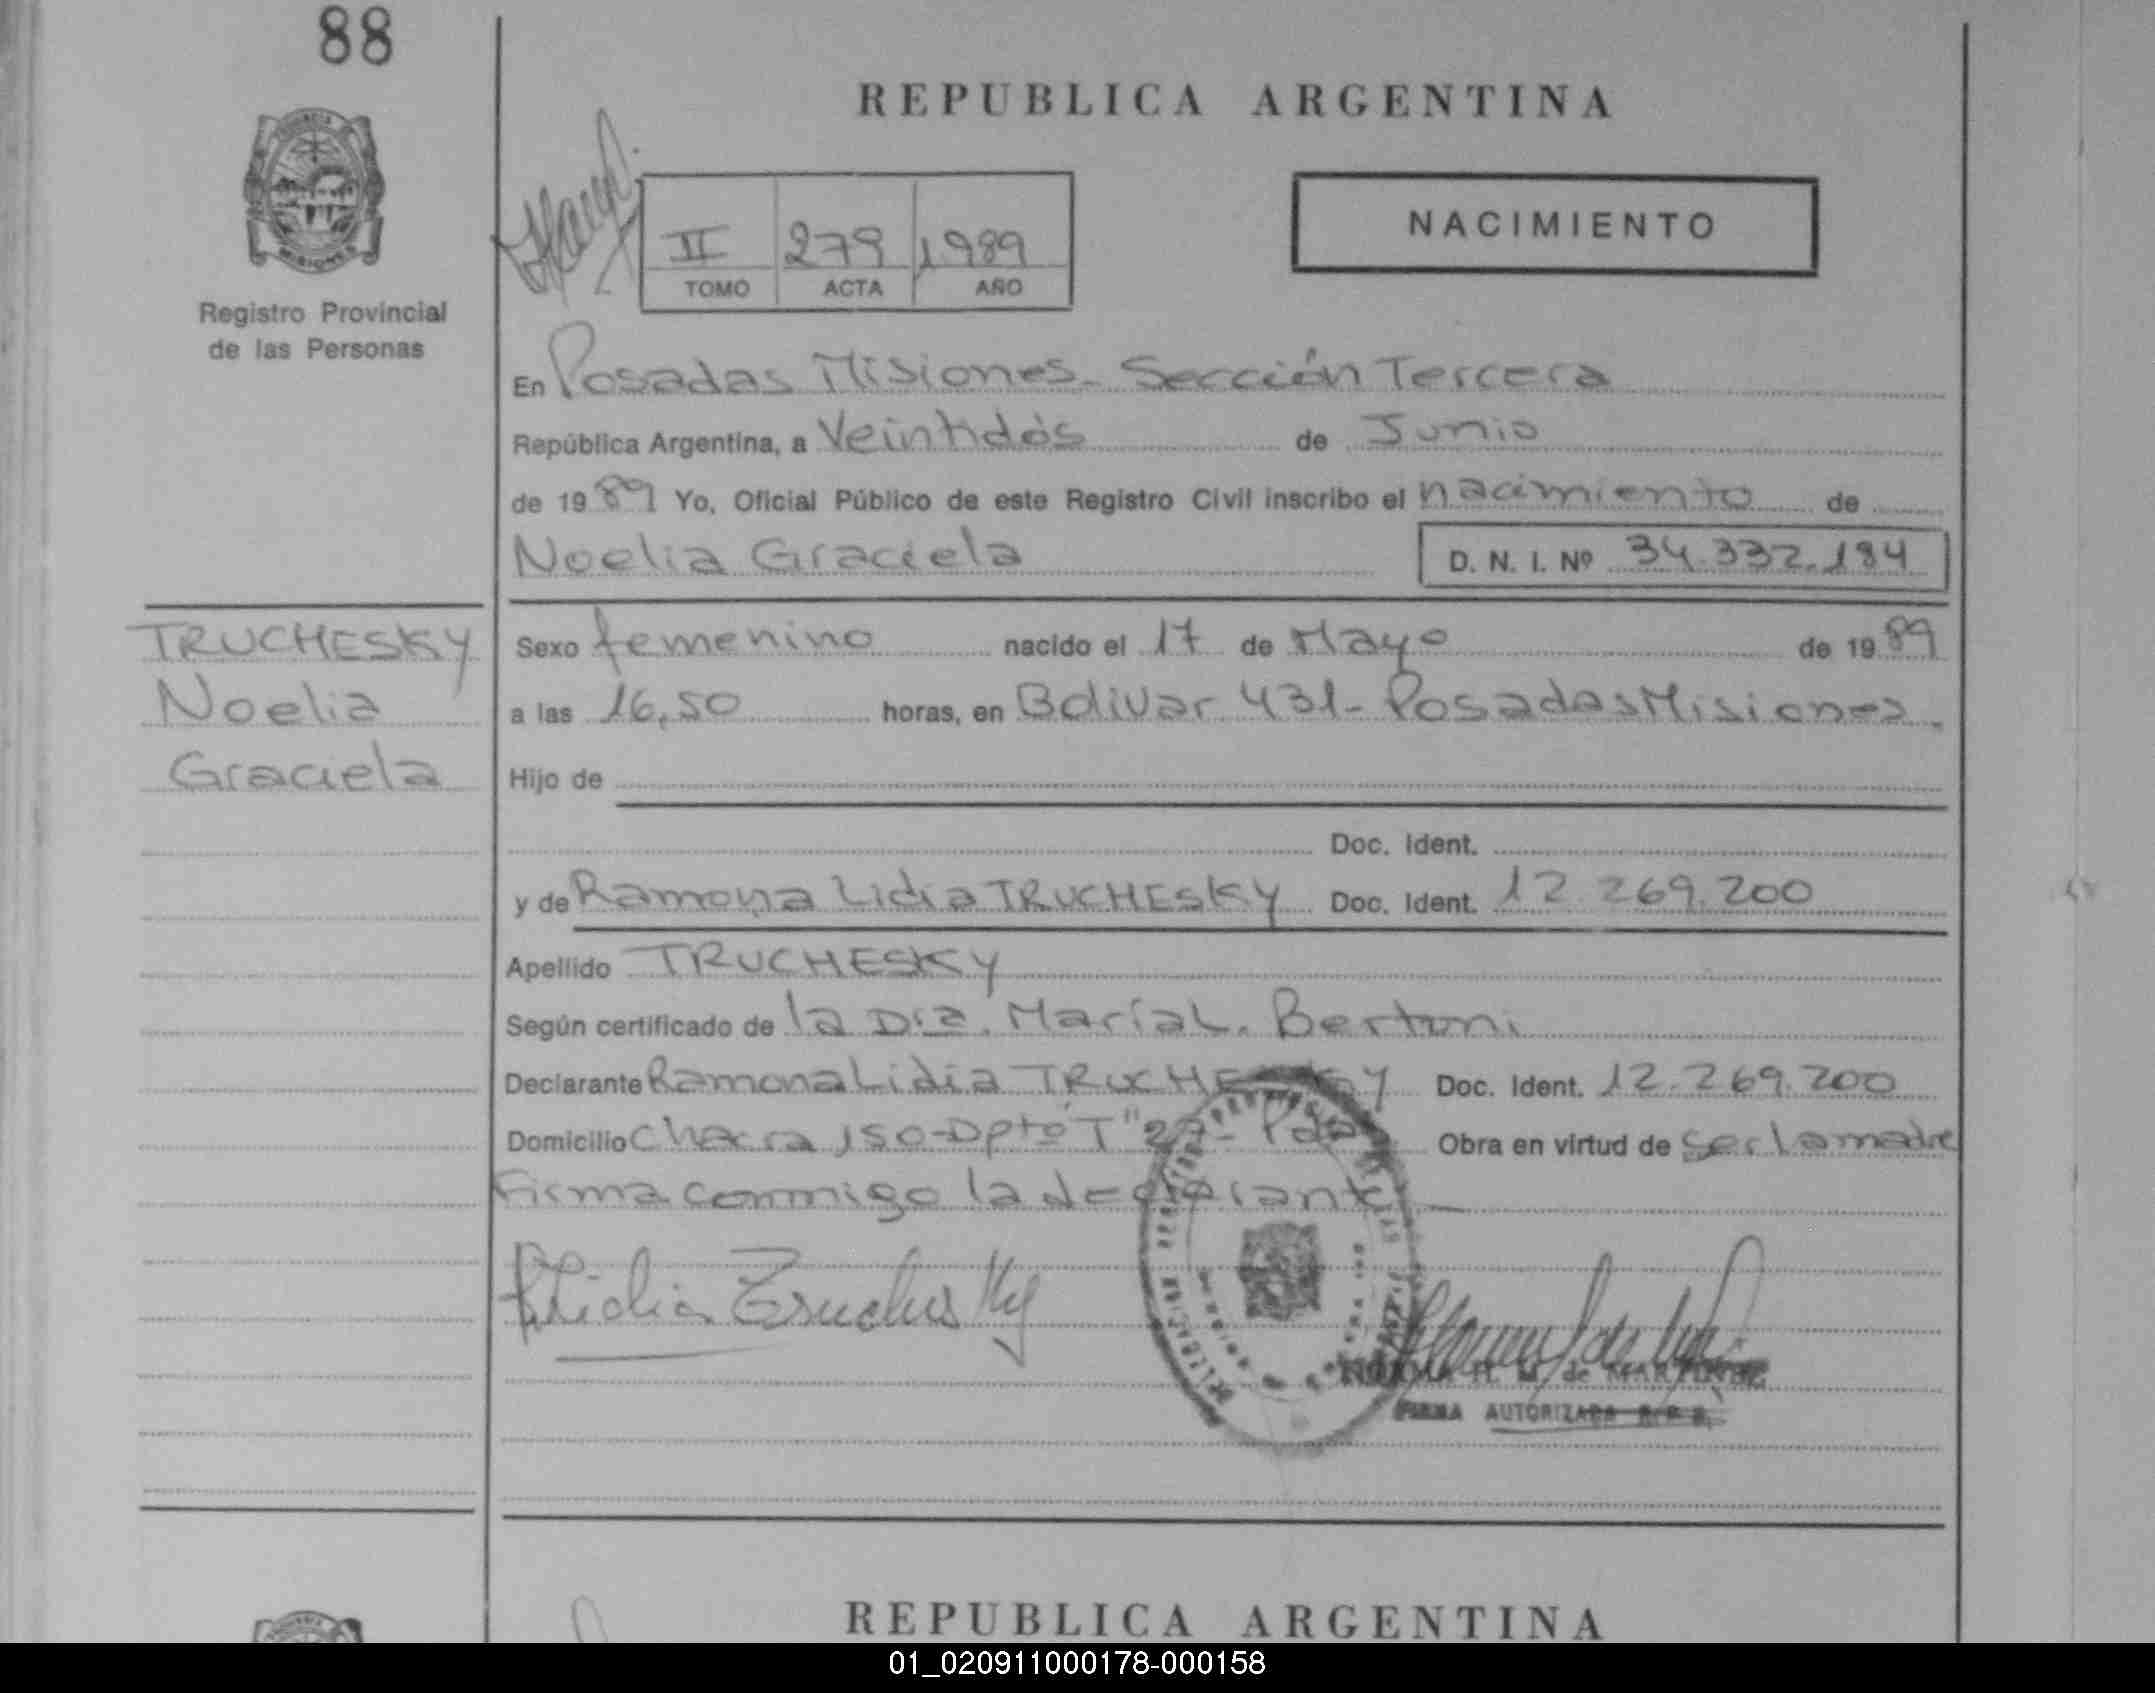 88
REPUBLICA ARGENTINA
PROVINCIA
MISIONES
Registro Provincial
de las Personas
II 279 1989
TOMO ACTA AÑO
NACIMIENTO
En Posadas Misiones - Sección Tercera
República Argentina, a Veintidós de Junio
de 1989 Yo, Oficial Público de este Registro Civil inscribo el nacimiento de
Noelia Graciela D. N. I. Nº 34.332.184
TRUCHESKY
Noelia
Graciela
Sexo femenino nacido el 17 de Mayo de 1989
a las 16,50 horas, en Bolivar 431 - Posadas Misiones.
Hijo de
Doc. Ident.
y de Ramona Lidia TRUCHESKY Doc. Ident. 12.269.200
Apellido TRUCHESKY
Según certificado de la Dra. María L. Bertoni
Declarante Ramona Lidia TRUCHESKY Doc. Ident. 12.269.200
Domicilio Chacra 150 - Dpto "T" 27 - Pdas Obra en virtud de ser la madre
Firma conmigo la declarante
R Lidia Truchesky
NORMA H. M. de MARTINEZ
FIRMA AUTORIZADA R.P.P.
REPUBLICA ARGENTINA
01_020911000178-000158